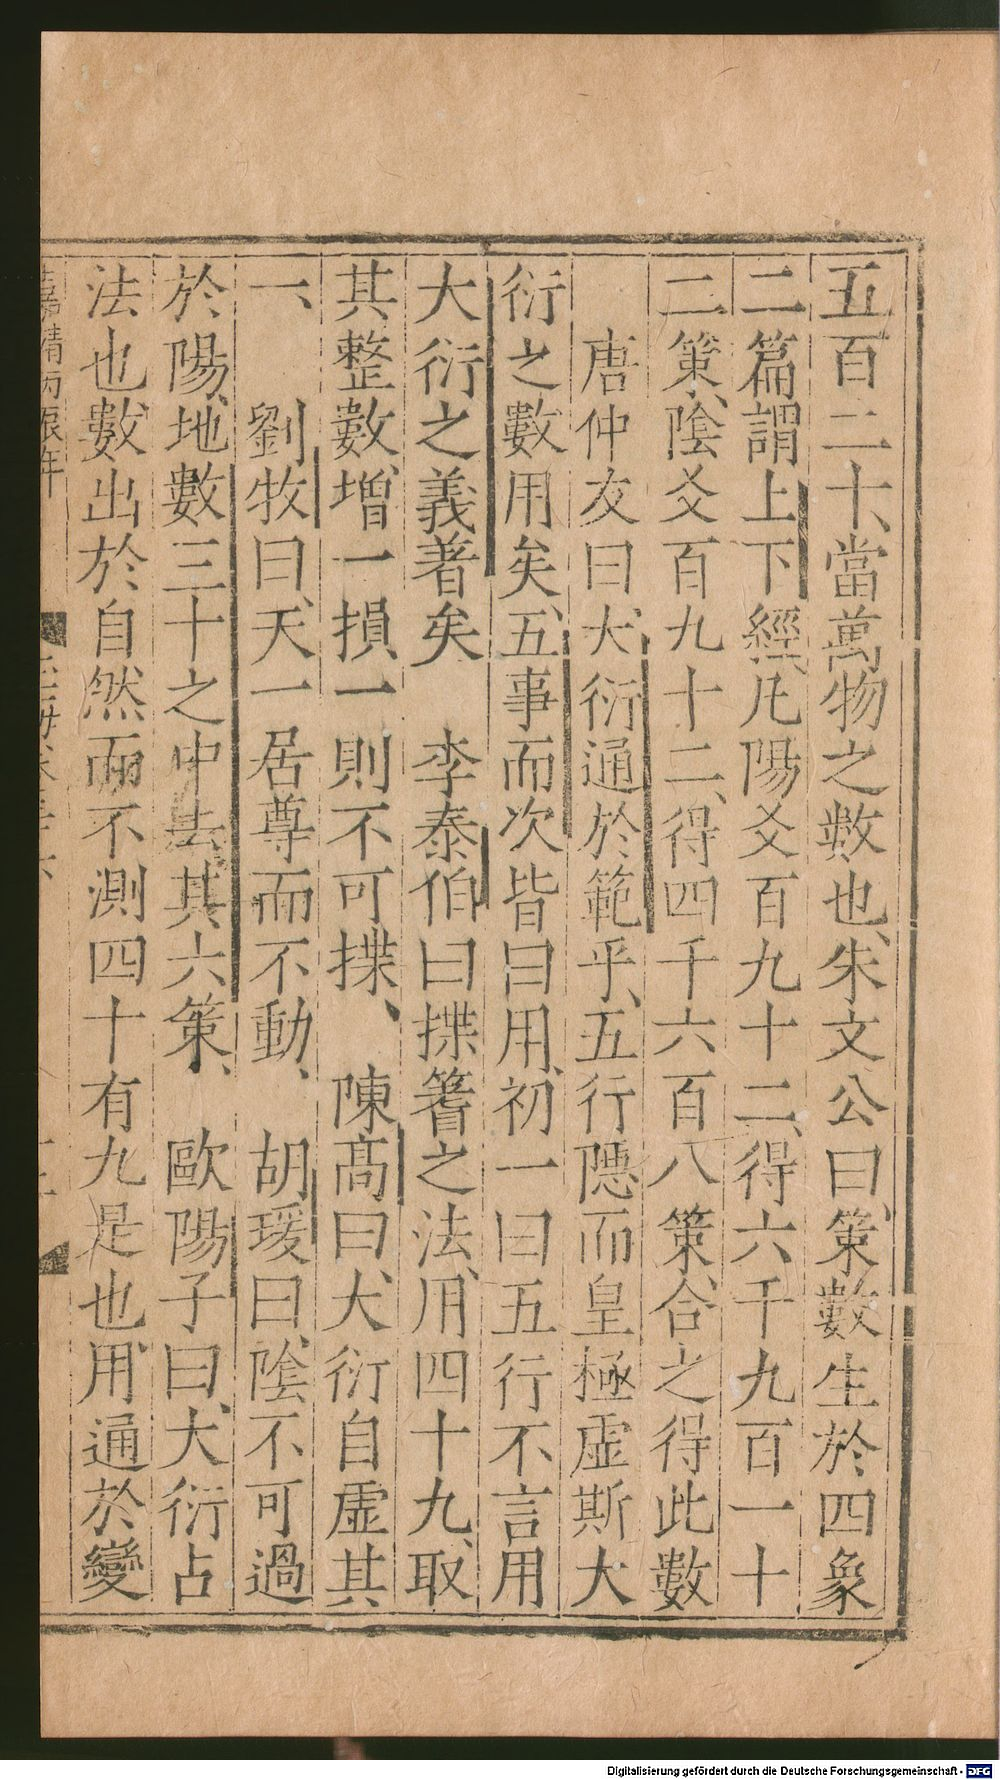 五百二十、當萬物之數也、朱文公曰、策數生於四象
二篇謂上下經、凡陽爻百九十二、得六千九百一十
二策、陰爻百九十二、得四千六百八策、合之得此數
唐仲友曰、大衍通於範乎、五行隱而皇極虛、斯大
衍之數用矣、五事而次皆曰用、初一曰五行不言用
大衍之義著矣　李泰伯曰揲蓍之法、用四十九、取
其整數、增一損一則不可揲、　陳高曰、大衍自虛其
一、　劉牧曰、天一居尊而不動、　胡瑗曰、陰不可過
於陽、地數三十之中去其六策、　歐陽子曰、大衍占
法也、數出於自然而不測四十有九是也、用通於變
嘉靖丙辰年
Digitalisierung gefördert durch die Deutsche Forschungsgemeinschaft - DFG